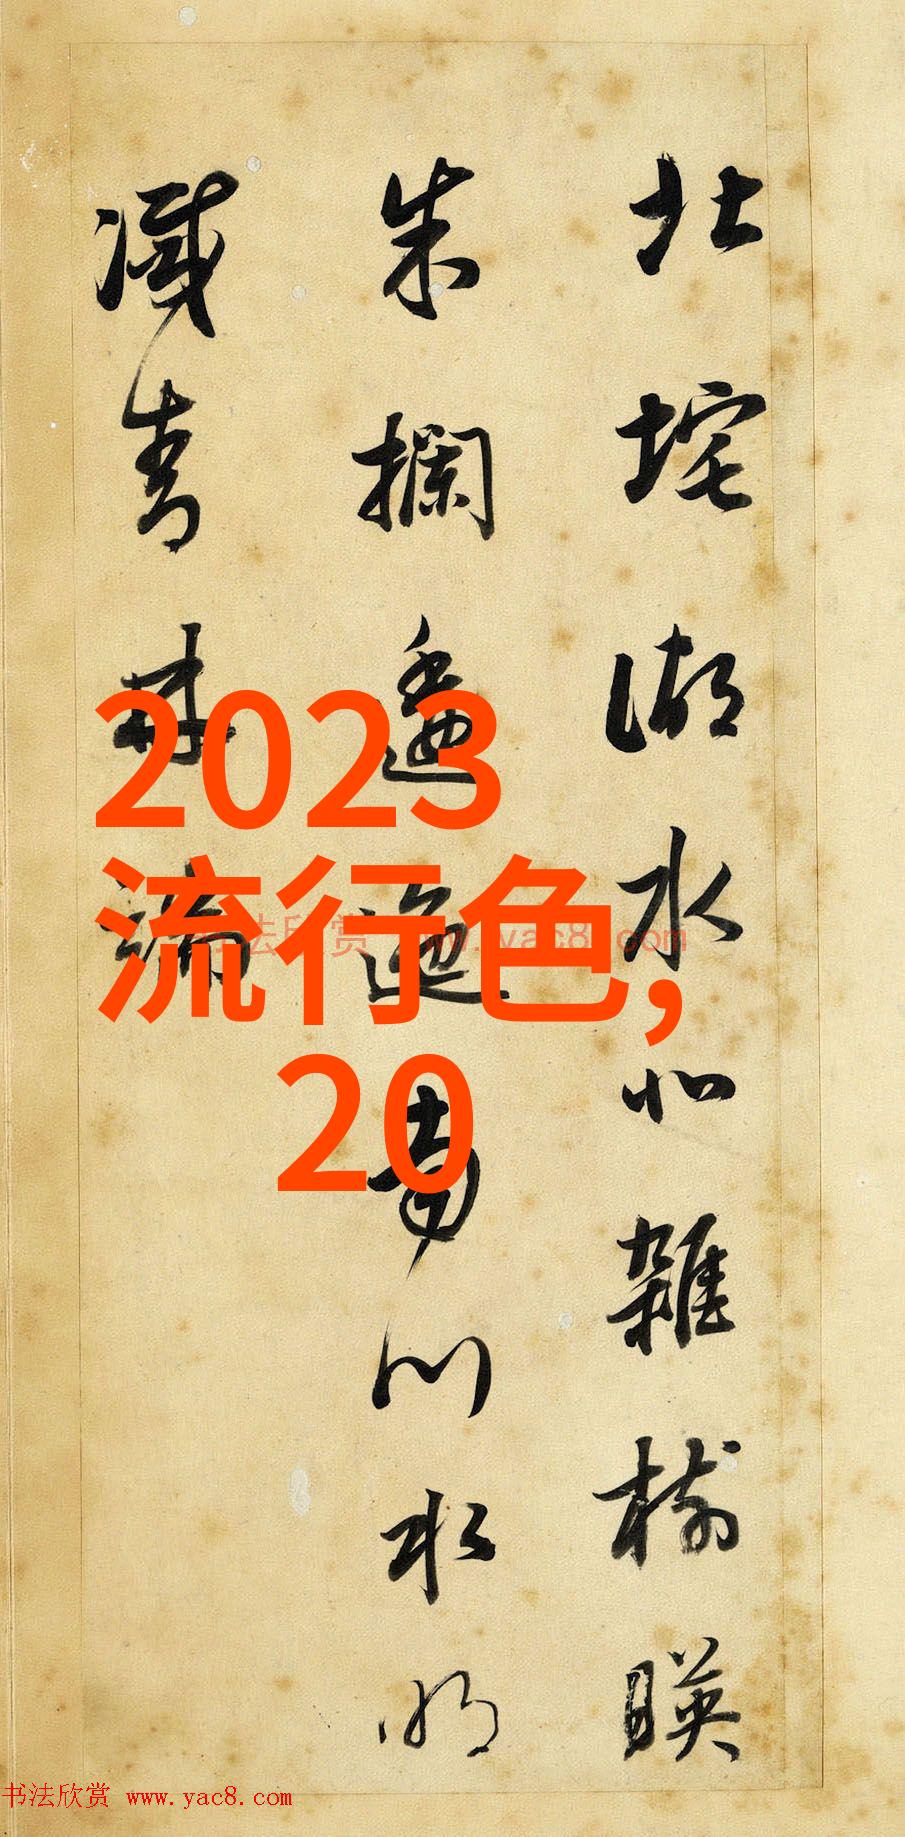 北垞湖水北雜樹暎
朱欄逶迤南川水明
滅青林端
2023
流行色,
20
书法欣赏 www.yac8.com
书法欣赏 www.yac8.com